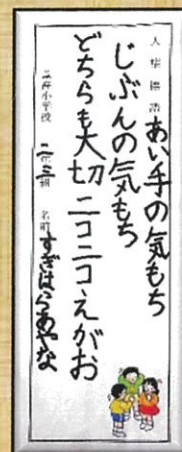 人権標語
あい手の気もち
じぶんの気もち
どちらも大切 ニコニコえがお
小学校 二年三組 名前 すぎはらあやな